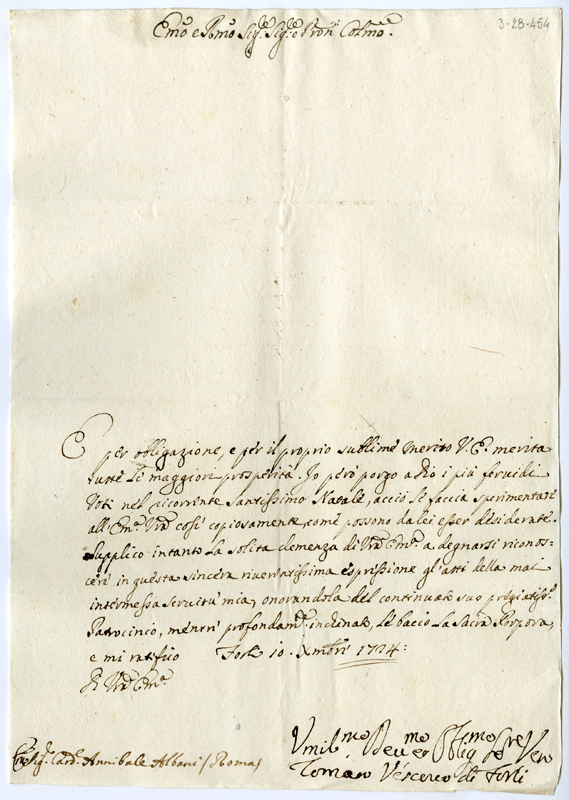 Emo e Rmo Sigre Sigre e Pron Colmo
3-28-454
E per obbligazione, e per il proprio sublime merito V. E. merita
tutte le maggiori prosperità. Io però porgo a Dio i più feruidi
Voti nel ricorrente Santissimo Natale, acciò le faccia sperimentare
all' Emª Vrª così copiosamente, come possono da lei esser desiderate.
Supplico intanto la solita clemenza di Vrª Emª a degnarsi riconos=
cere in questa sincera riuerentissima espressione gl'atti della mai
intermessa Seruitù mia, onorandola del continuato suo pregiatissº
Patrocinio, mentre profondamte inclinato, le bacio la Sacra Porpora,
e mi ratifico Forlì 10. Xmbre 1724:
Di Vrª Emª
Emo Sigr Card. Annibale Albani / Roma /
Vmilmo Deuermo Obligmo Sre Vero
Tomaso Vescouo di Forlì